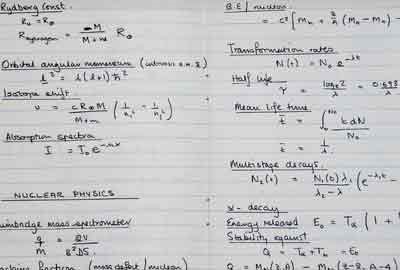 Rydberg Const.
R∞ = R∞
R_hydrogen = M / (M+m) R∞
Orbital angular momentum
l² = l(l+1)ħ²
Isotope shift
ν = cR∞M / (M+m) (1/n₁² - 1/n₂²)
Absorption spectra
I = I₀e
NUCLEAR PHYSICS
mass spectrometer
q/m = 2V / B²
fraction (mass defect/nucleon)
B.E/nucleon
= c² [Mn + (Mn - Mn) -
Transformation rates
N(t) = N₀ e^-λt
Half life
τ = loge2 / λ = 0.693
Mean life time
t̄ = ∫₀^N₀ t dN / N₀
t̄ = 1/λ
Multistage decays.
N₂(t) = N₁(0) λ₁ / (λ₂ - λ) (e^-λ₁t -
α - decay
Energy released E₀ = Tα (1 +
Stability against
Q = Tα + Tb = E₀
Q = (Z,A) - (Z-2, A-4)